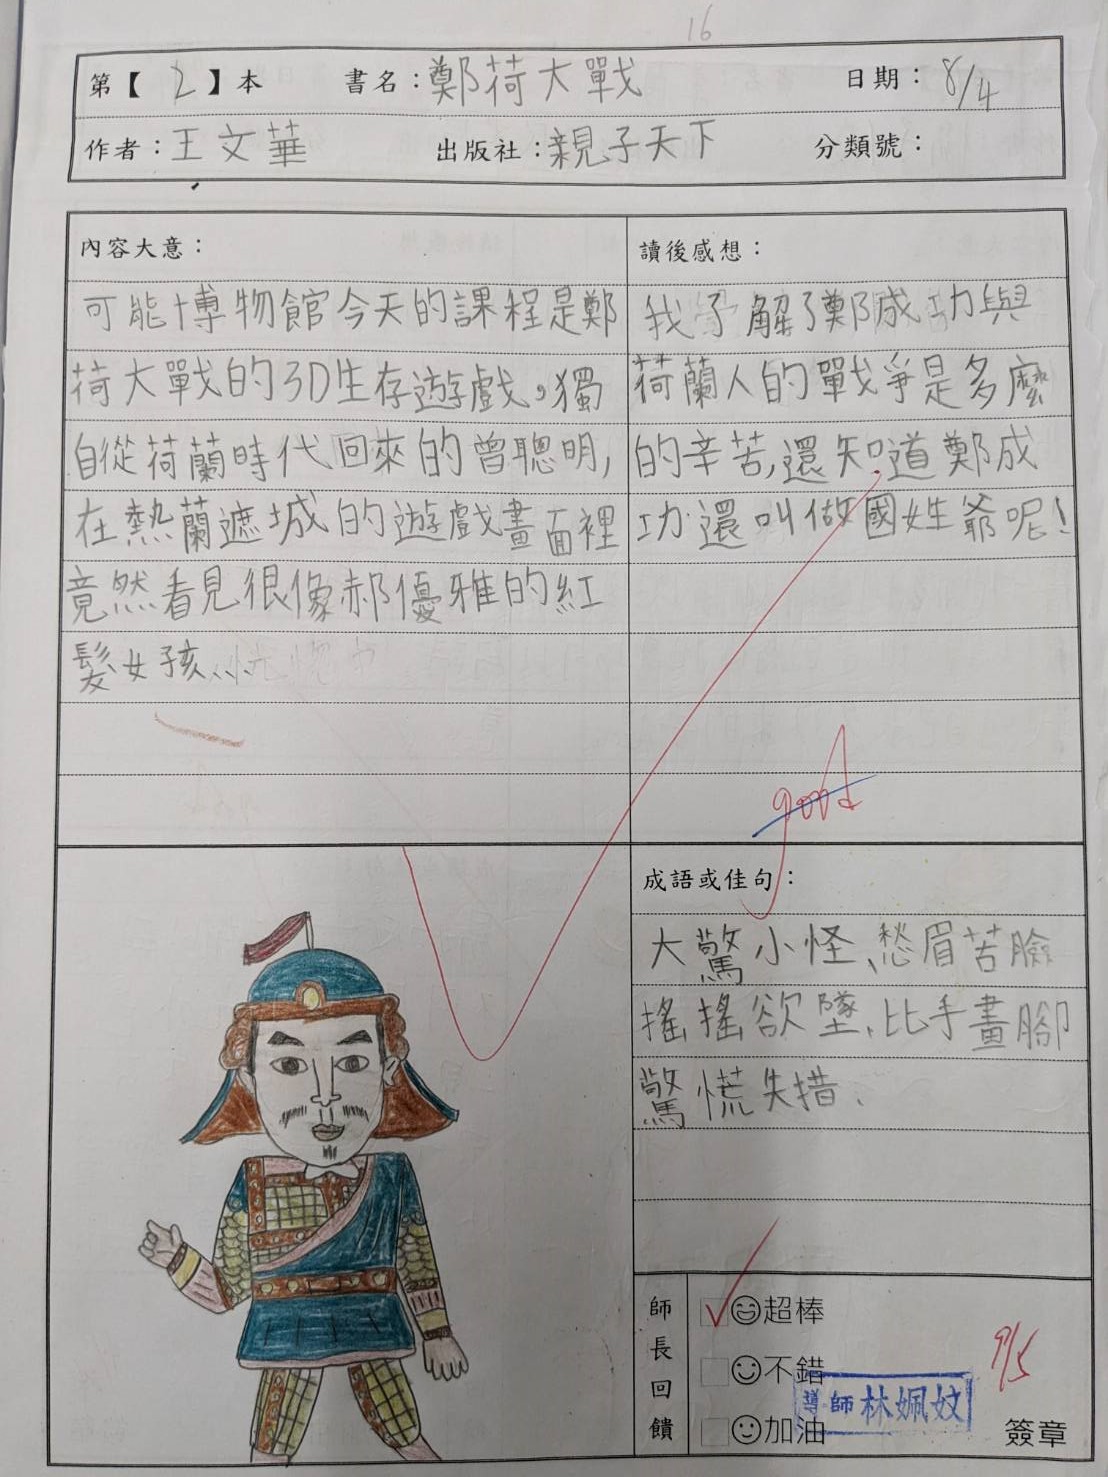 16
第【 2 】本 書名：鄭荷大戰 日期：8/4
作者：王文華 出版社：親子天下 分類號：
內容大意：
可能博物館今天的課程是鄭
荷大戰的3D生存遊戲。獨
自從荷蘭時代回來的曾聰明,
在熱蘭遮城的遊戲畫面裡
竟然看見很像郝優雅的紅
髮女孩…
讀後感想：
我了解了鄭成功與
荷蘭人的戰爭是多麼
的辛苦,還知道鄭成
功還叫做國姓爺呢!
good
成語或佳句：
大驚小怪、愁眉苦臉
搖搖欲墜、比手畫腳
驚慌失措、
師長回饋
超棒
不錯
加油
9/5
導師林姵妏
簽章